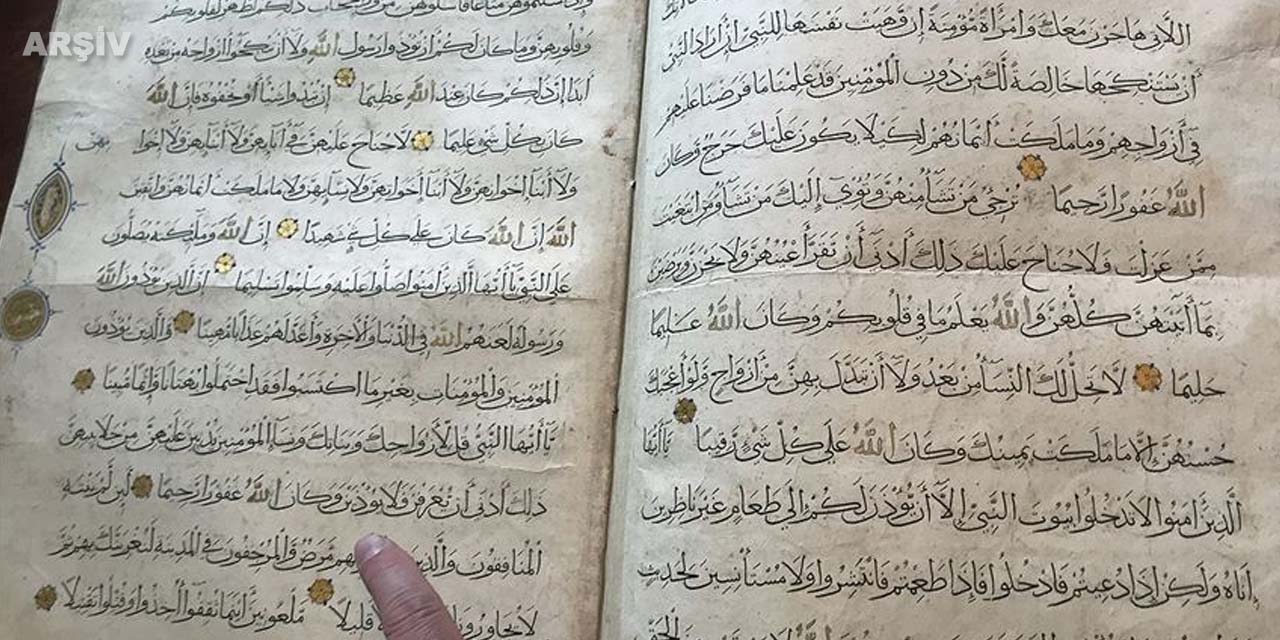 ARŞİV
اللاتي هاجرن معك وامرأة مؤمنة إن وهبت نفسها للنبي إن أراد النبي
أن يستنكحها خالصة لك من دون المؤمنين قد علمنا ما فرضنا عليهم
في أزواجهم وما ملكت أيمانهم لكيلا يكون عليك حرج وكان
الله غفورا رحيما ترجي من تشاء منهن وتؤوي إليك من تشاء ومن ابتغيت
ممن عزلت فلا جناح عليك ذلك أدنى أن تقر أعينهن ولا يحزن ويرضين
بما آتيتهن كلهن والله يعلم ما في قلوبكم وكان الله عليما
حليما لا يحل لك النساء من بعد ولا أن تبدل بهن من أزواج ولو أعجبك
حسنهن إلا ما ملكت يمينك وكان الله على كل شيء رقيبا يا أيها
الذين آمنوا لا تدخلوا بيوت النبي إلا أن يؤذن لكم إلى طعام غير ناظرين
إناه ولكن إذا دعيتم فادخلوا فإذا طعمتم فانتشروا ولا مستأنسين لحديث
الحق
ذلكم أطهر لقلوبكم
وقلوبهن وما كان لكم أن تؤذوا رسول الله ولا أن تنكحوا أزواجه من بعده
أبدا إن ذلكم كان عند الله عظيما إن تبدوا شيئا أو تخفوه فإن الله
كان بكل شيء عليما لا جناح عليهن في آبائهن ولا أبنائهن ولا إخوا نهن
ولا أبناء إخوانهن ولا أبناء أخواتهن ولا نسائهن ولا ما ملكت أيمانهن واتقين
الله إن الله كان على كل شيء شهيدا إن الله وملائكته يصلون
على النبي يا أيها الذين آمنوا صلوا عليه وسلموا تسليما إن الذين يؤذون الله
ورسوله لعنهم الله في الدنيا والآخرة وأعد لهم عذابا مهينا والذين يؤذون
المؤمنين والمؤمنات بغير ما اكتسبوا فقد احتملوا بهتانا وإثما مبينا
يا أيها النبي قل لأزواجك وبناتك ونساء المؤمنين يدنين عليهن من جلابيبهن
ذلك أدنى أن يعرفن فلا يؤذين وكان الله غفورا رحيما لئن لم ينته
المنافقون والذين بهم مرض والمرجفون في المدينة لنغرينك بهم ثم
لا يجاورونك قليلا ملعونين أينما ثقفوا أخذوا وقتلوا تقتيلا